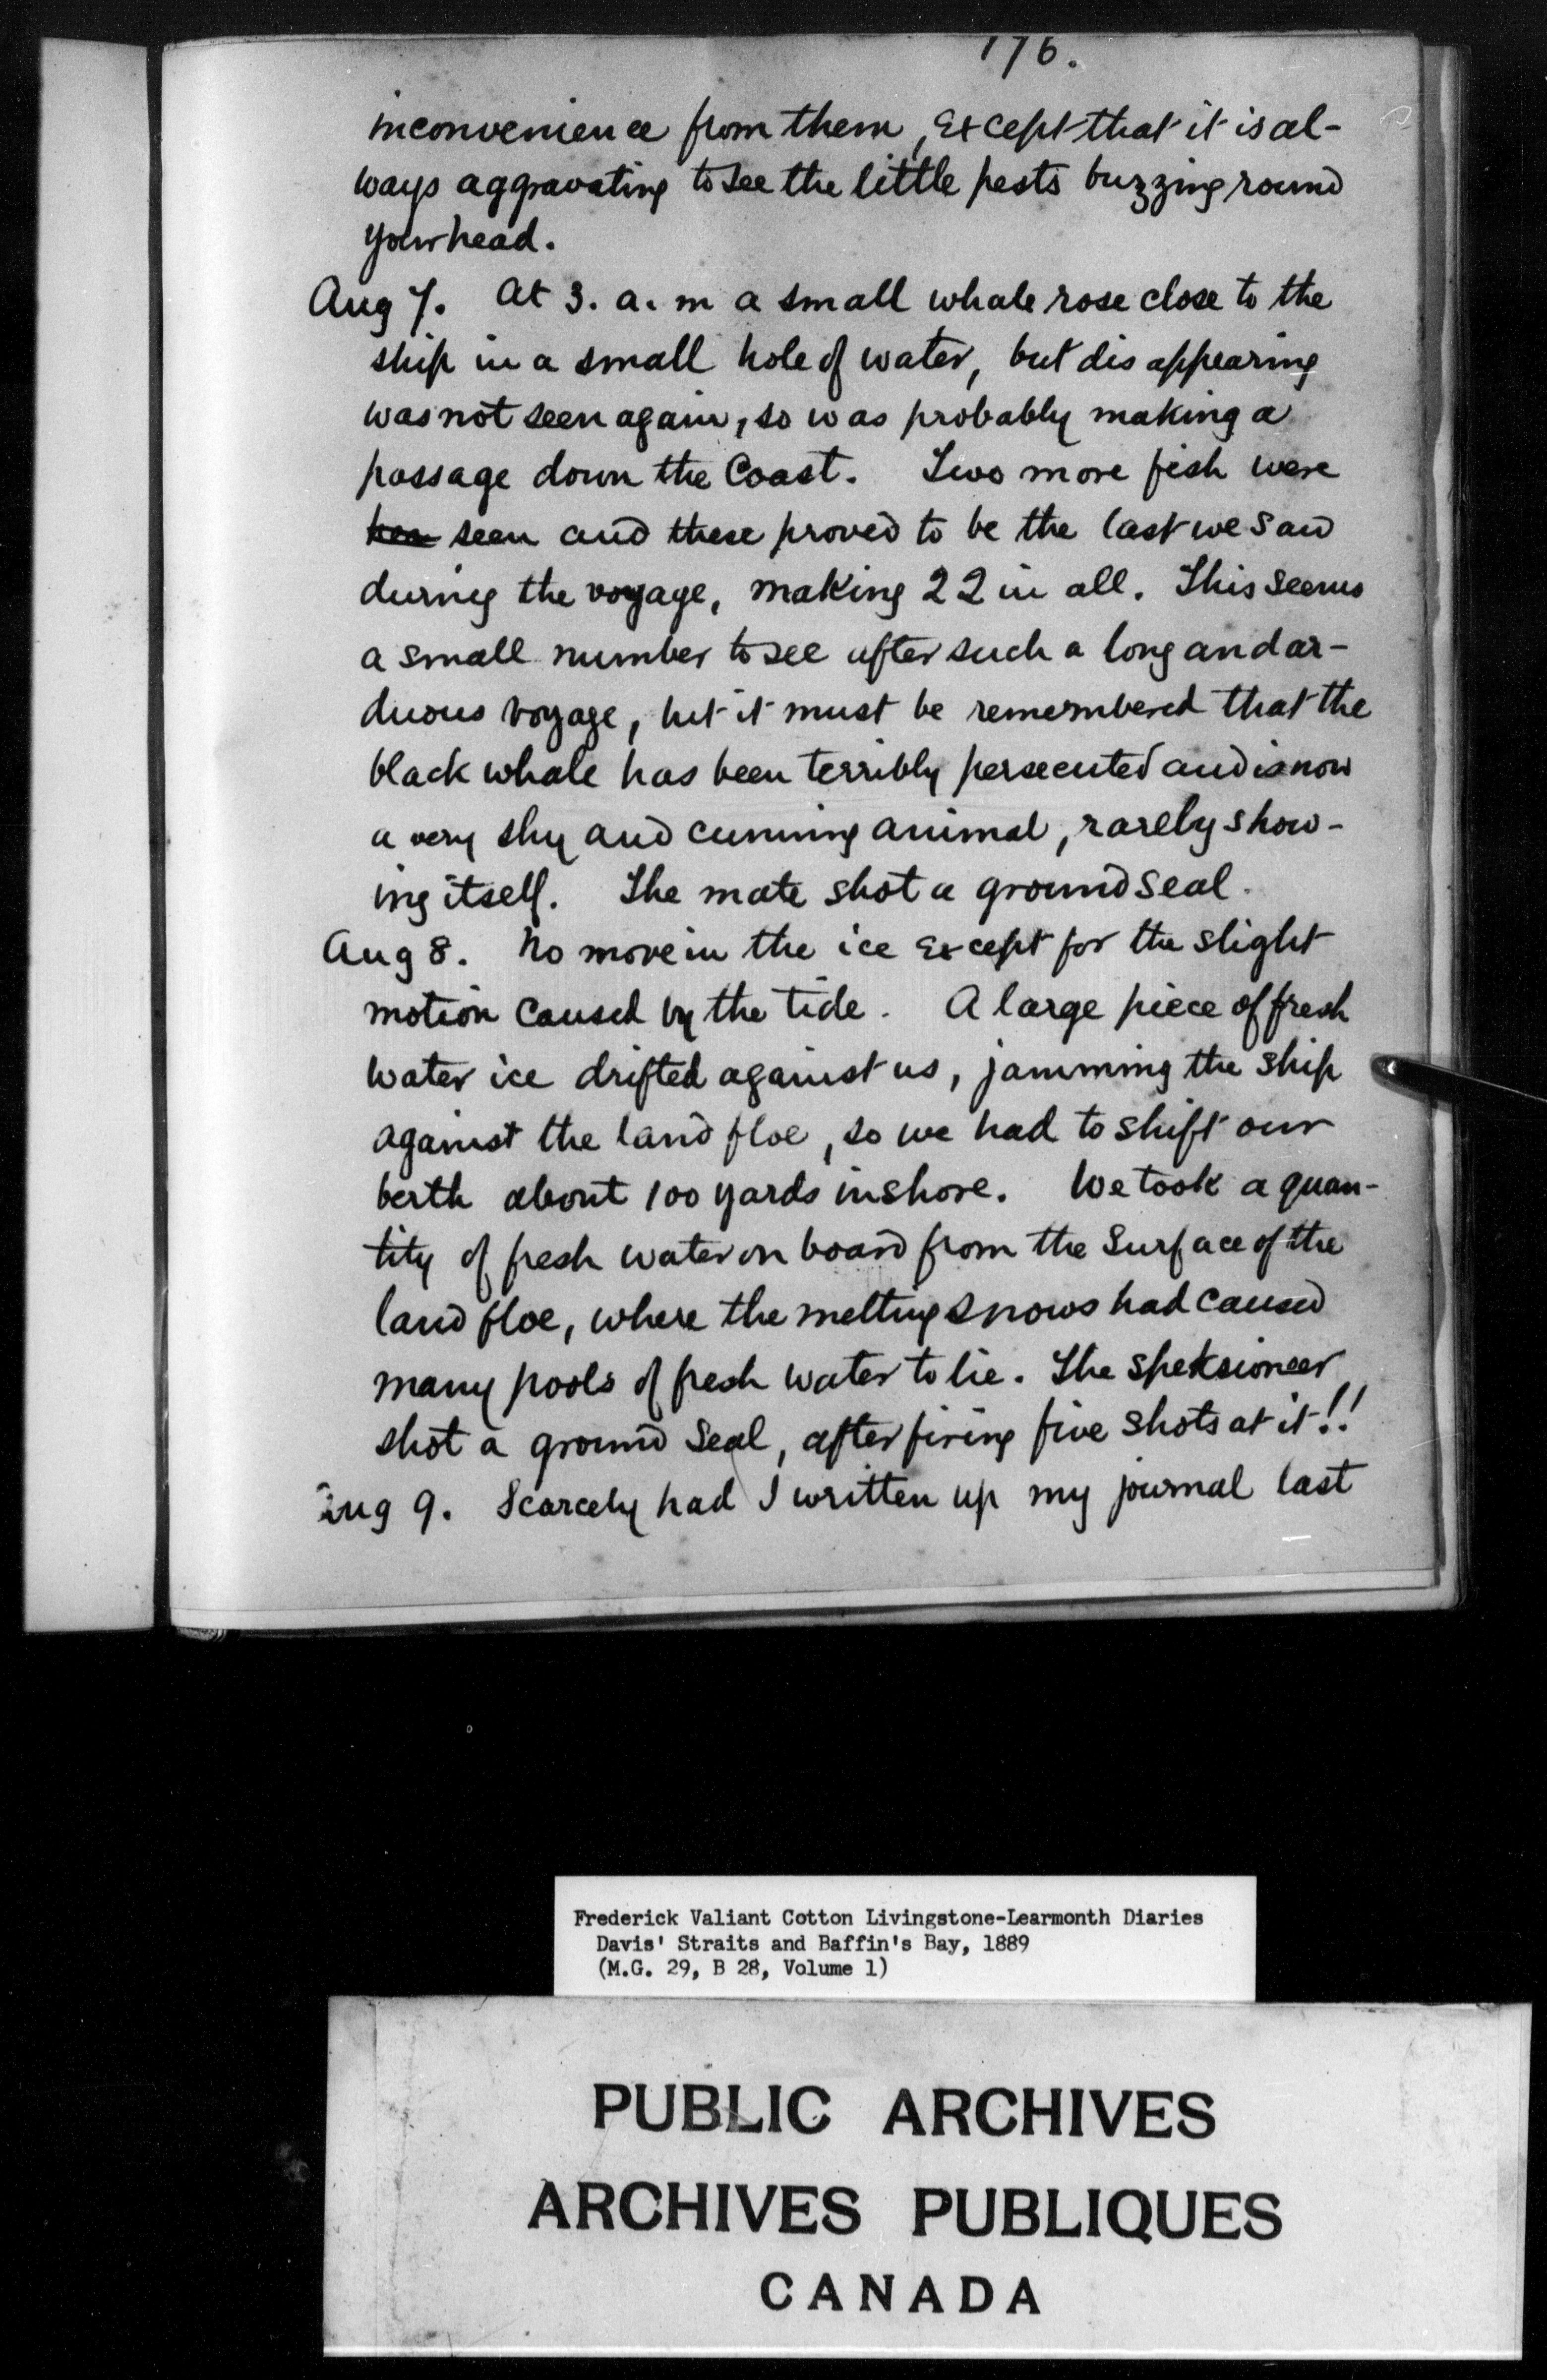 176.
inconvenience from them, except that it is al-
ways aggravating to see the little pests buzzing round
your head.
Aug 7. At 3. a. m a small whale rose close to the
ship in a small hole of water, but disappearing
was not seen again, so was probably making a
passage down the Coast. Two more fish were
seen and these proved to be the last we saw
during the voyage, making 22 in all. This seems
a small number to see after such a long and ar-
duous voyage, but it must be remembered that the
black whale has been terribly persecuted and is now
a very shy and cunning animal, rarely show-
ing itself. The mate shot a ground seal.
Aug 8. No move in the ice except for the slight
motion caused by the tide. A large piece of fresh
water ice drifted against us, jamming the ship
against the land floe, so we had to shift our
berth about 100 yards inshore. We took a quan-
tity of fresh water on board from the surface of the
land floe, where the melting snows had caused
many pools of fresh water to lie. The speksioneer
shot a ground seal, after firing five shots at it!!
Aug 9. Scarcely had I written up my journal last
Frederick Valiant Cotton Livingstone-Learmonth Diaries
Davis' Straits and Baffin's Bay, 1889
(M.G. 29, B 28, Volume 1)
PUBLIC ARCHIVES
ARCHIVES PUBLIQUES
CANADA